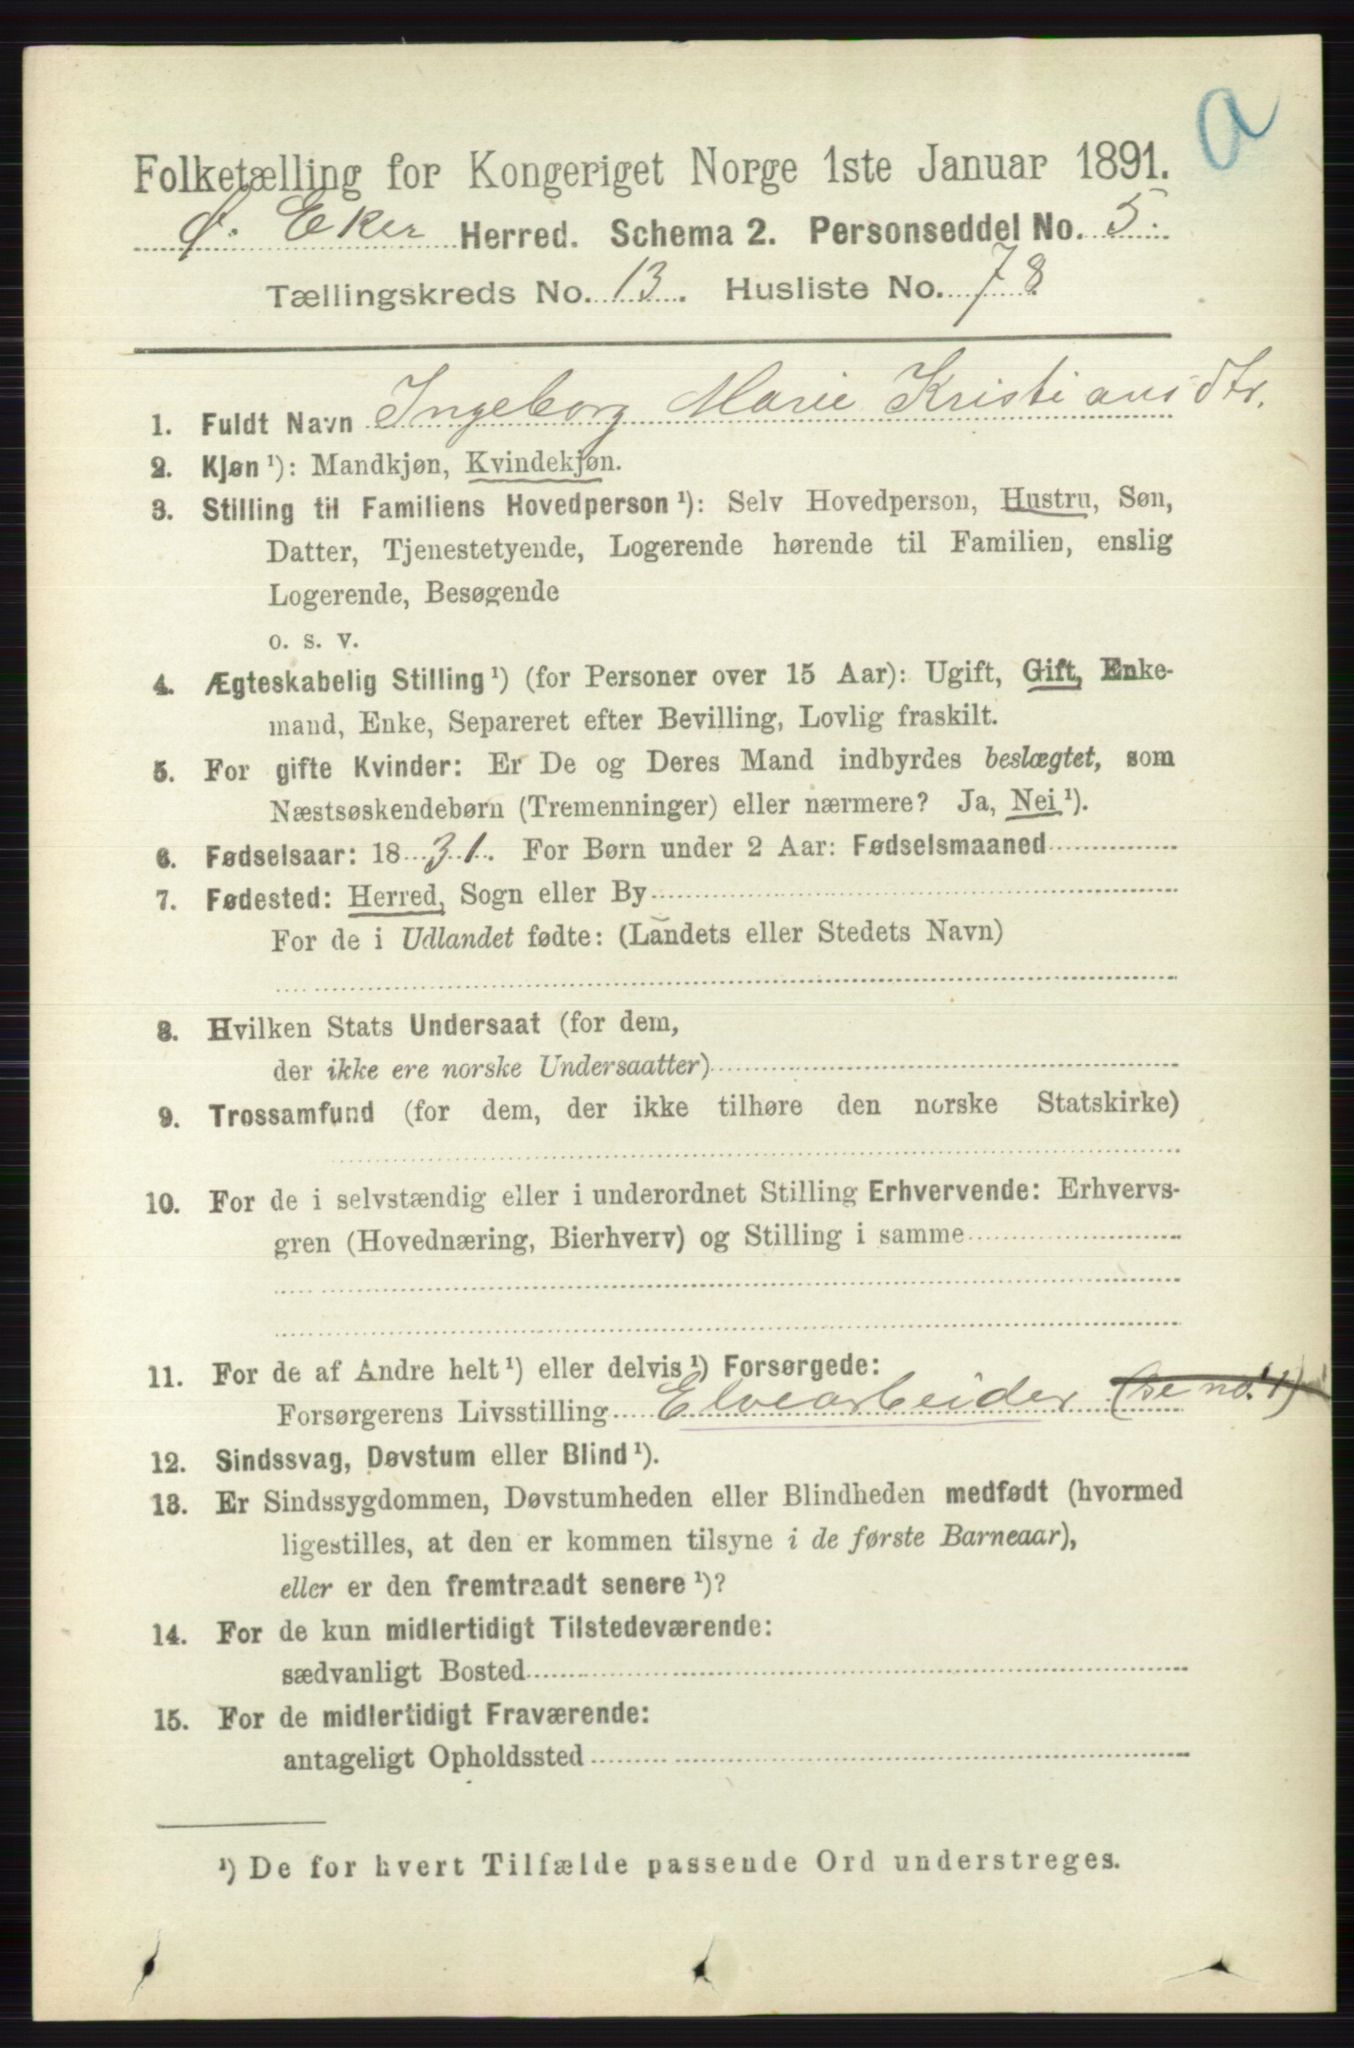 a
Folketælling for Kongeriget Norge 1ste Januar 1891.
Ø. Eker Herred. Schema 2. Personseddel No. 5.
Tællingskreds No. 13. Husliste No. 78
1. Fuldt Navn Ingeborg Marie Kristiansdtr.
2. Kjøn ¹): Mandkjøn, Kvindekjøn.
3. Stilling til Familiens Hovedperson ¹): Selv Hovedperson, Hustru, Søn,
Datter, Tjenestetyende, Logerende hørende til Familien, enslig
Logerende, Besøgende
o. s. v.
4. Ægteskabelig Stilling ¹) (for Personer over 15 Aar): Ugift, Gift, Enke-
mand, Enke, Separeret efter Bevilling, Lovlig fraskilt.
5. For gifte Kvinder: Er De og Deres Mand indbyrdes beslægtet, som
Næstsøskendebørn (Tremenninger) eller nærmere? Ja, Nei ¹).
6. Fødselsaar: 1831. For Børn under 2 Aar: Fødselsmaaned
7. Fødested: Herred, Sogn eller By
For de i Udlandet fødte: (Landets eller Stedets Navn)
8. Hvilken Stats Undersaat (for dem,
der ikke ere norske Undersaatter)
9. Trossamfund (for dem, der ikke tilhøre den norske Statskirke)
10. For de i selvstændig eller i underordnet Stilling Erhvervende: Erhvervs-
gren (Hovednæring, Bierhverv) og Stilling i samme
11. For de af Andre helt ¹) eller delvis ¹) Forsørgede:
Forsørgerens Livsstilling Elvearbeider (se no. 1)
12. Sindssvag, Døvstum eller Blind ¹).
13. Er Sindssygdommen, Døvstumheden eller Blindheden medfødt (hvormed
ligestilles, at den er kommen tilsyne i de første Barneaar),
eller er den fremtraadt senere ¹)?
14. For de kun midlertidigt Tilstedeværende:
sædvanligt Bosted
15. For de midlertidigt Fraværende:
antageligt Opholdssted
¹) De for hvert Tilfælde passende Ord understreges.